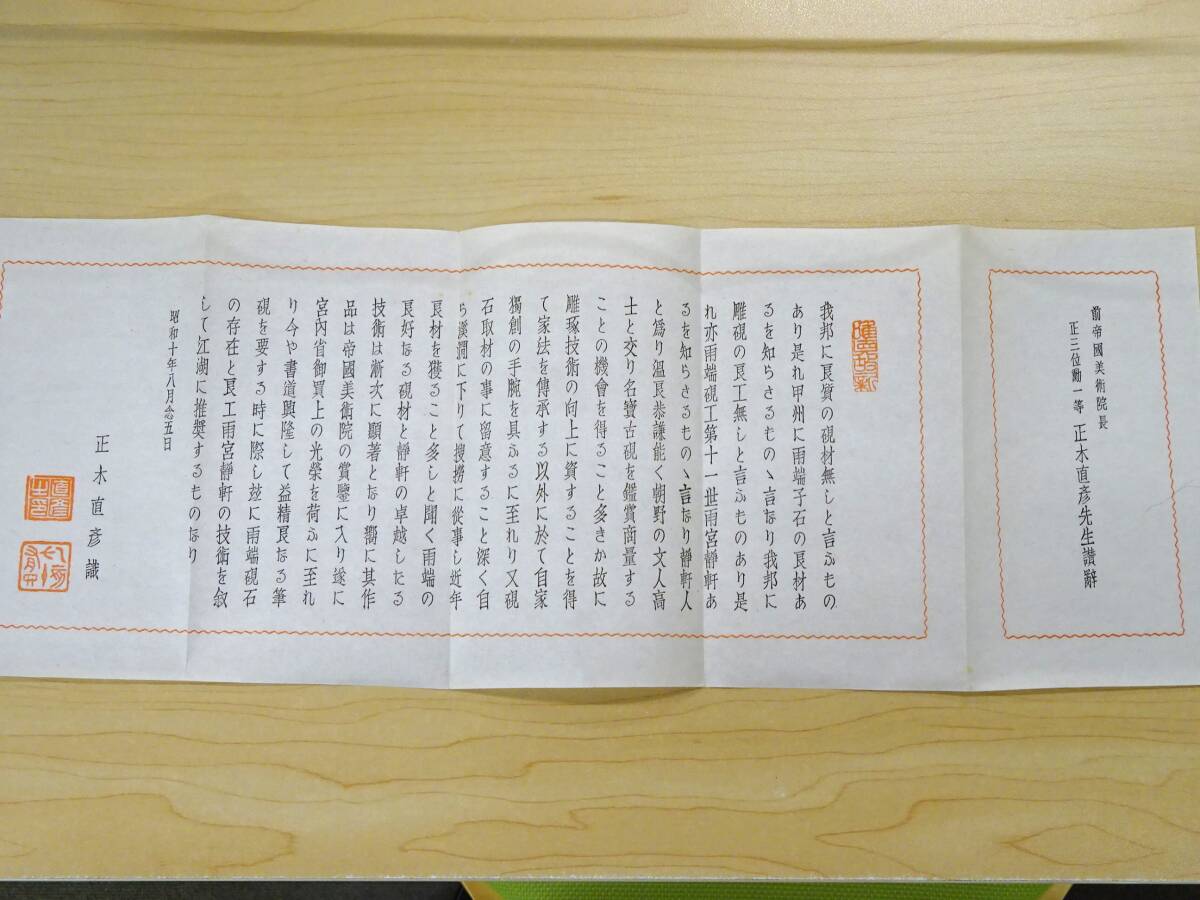 前帝國美術院長
正三位勳一等 正木直彦先生讃辭
我邦に良質の硯材無しと言ふもの
あり是れ甲州に雨端子石の良材あ
るを知らさるものゝ言なり我邦に
雕硯の良工無しと言ふものあり是
れ亦雨端硯工第十一世雨宮靜軒あ
るを知らさるものゝ言なり靜軒人
と爲り溫良恭謙能く朝野の文人高
士と交り名寶古硯を鑑賞商量する
ことの機會を得ること多きか故に
雕琢技術の向上に資することを得
て家法を傳承する以外に於て自家
獨創の手腕を具ふるに至れり又硯
石取材の事に留意すること深く自
ら溪澗に下りて搜撈に從事し近年
良材を獲ること多しと聞く雨端の
良好なる硯材と靜軒の卓越したる
技術は漸次に顯著となり嚮に其作
品は帝國美術院の賞鑒に入り遂に
宮內省御買上の光榮を荷ふに至れ
り今や書道興隆して益精良なる筆
硯を要する時に際し玆に雨端硯石
の存在と良工雨宮靜軒の技術を敘
して江湖に推奬するものなり
昭和十年八月念五日
正木直彦識
直彦
之印